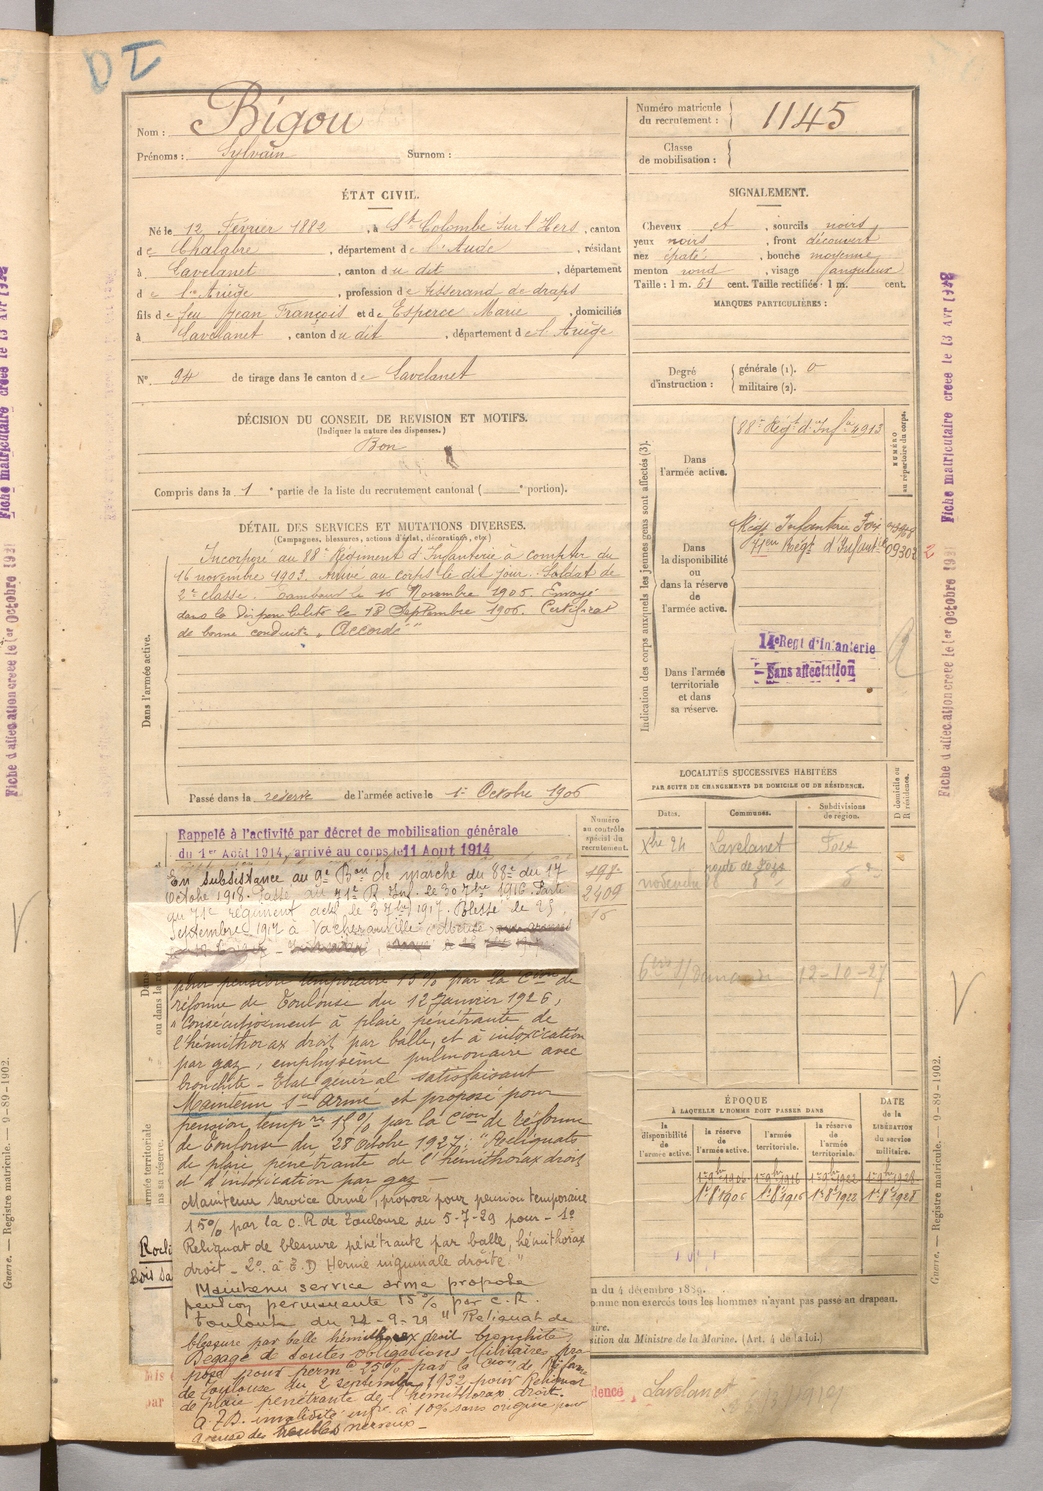 DI
Nom : Bigou
Prénoms : Sylvain Surnom :
Numéro matricule du recrutement : 1145
Classe de mobilisation :
ÉTAT CIVIL.
Né le 12 Février 1882, à Ste Colombe sur l'Hers, canton
de Chalabre, département de l'Aude, résidant
à Lavelanet, canton du dit, département
de l'Ariège, profession de tisserand de draps
fils de feu Jean François et de Esperce Marie, domiciliés
à Lavelanet, canton du dit, département de l'Ariège
N° 94 de tirage dans le canton de Lavelanet
SIGNALEMENT.
Cheveux et, sourcils noirs
yeux noirs, front découvert
nez épaté, bouche moyenne
menton rond, visage
Taille : 1 m. 61 cent. Taille rectifiée : 1 m. cent.
MARQUES PARTICULIÈRES :
Degré d'instruction : générale (1). 0
militaire (2).
DÉCISION DU CONSEIL DE REVISION ET MOTIFS.
(Indiquer la nature des dispenses.)
Bon
Compris dans la 1e partie de la liste du recrutement cantonal ( e portion).
DÉTAIL DES SERVICES ET MUTATIONS DIVERSES.
(Campagnes, blessures, actions d'éclat, décoration, etc.)
Dans l'armée active.
Incorporé au 88e Régiment d'Infanterie à compter du
16 novembre 1903. Arrivé au corps le dit jour. Soldat de
2e classe. Tambour le 16 Novembre 1905. Envoyé
dans la disponibilité le 18 Septembre 1906. Certificat
de bonne conduite "Accordé"
Passé dans la réserve de l'armée active le 1er Octobre 1906
Indication des corps auxquels les jeunes gens sont affectés (3).
NUMÉRO au répertoire du corps.
Dans l'armée active.
88e Régt d'Infie 4913
Dans la disponibilité ou dans la réserve de l'armée active.
Régt Infanterie Foix
Régt d'Infanterie 09302
Dans l'armée territoriale et dans sa réserve.
14e Regt d'infanterie
Sans affectation
LOCALITÉS SUCCESSIVES HABITÉES
PAR SUITE DE CHANGEMENTS DE DOMICILE OU DE RÉSIDENCE.
Dates. Communes. Subdivisions de région. D domicile ou R résidence.
Xbre 24 Lavelanet Foix
route de Foix
12-10-27
Rappelé à l'activité par décret de mobilisation générale
du 1er Août 1914, arrivé au corps le 11 Aout 1914
Numéro au contrôle spécial du recrutement.
2409
En subsistance au 9e Bon de marche du 88e du 17
Octobre 1918. Passé au 71e R. Inf. le 30 7bre 1916. Parti
au 71e régiment actif le 3 7bre 1917. Blessé le 25
Septembre 1917 à Vacherauville (Meuse)
pour pension temporaire 15% par la Cion de
réforme de Toulouse du 12 Janvier 1926,
"Consécutivement à plaie pénétrante de
l'hémithorax droit par balle, et à intoxication
par gaz, emphysème pulmonaire avec
bronchite - Etat général satisfaisant
Maintenu sce Armé et proposé pour
pension tempre 15% par la Cion de réforme
de Toulouse du 28 Octobre 1927; "Reliquats
de plaie pénétrante de l'hémithorax droit
et d'intoxication par gaz -
Maintenu service Armé, proposé pour pension temporaire
15% par la C.R de Toulouse du 5-7-29 pour - 1°
Reliquat de blessure pénétrante par balle, hémithorax
droit - 2° à E.D Hernie inguinale droite."
Maintenu service armé proposé
pension permanente 15% par C.R.
Toulouse du 24-9-29 "Reliquat de
blessure par balle hémithorax droit bronchite.
Dégagé de toutes obligations Militaires pro-
posé pour perm 25% par la Cion de Réforme
de Toulouse du 2 septembre 1932 pour Reliquat
de plaie pénétrante de l'hémithorax droit.
invalidité infre à 10% sans origine pour
accuse des troubles nerveux -
ÉPOQUE
À LAQUELLE L'HOMME DOIT PASSER DANS
la disponibilité de l'armée active. la réserve de l'armée active. l'armée territoriale. la réserve de l'armée territoriale.
DATE de la LIBÉRATION du service militaire.
1r 8bre 1906 1r 8bre 1916 1r 8bre 1922 1r 8bre 1928
n du 4 décembre 1889.
omme non exercés tous les hommes n'ayant pas passé au drapeau.
aire.
sition du Ministre de la Marine. (Art. 4 de la loi.)
dence Lavelanet
Fiche d'affectation créée le 1er Octobre 1931
Fiche matriculaire créée le 13 Avr 1928
Guerre. — Registre matricule. — 9-89-1902.